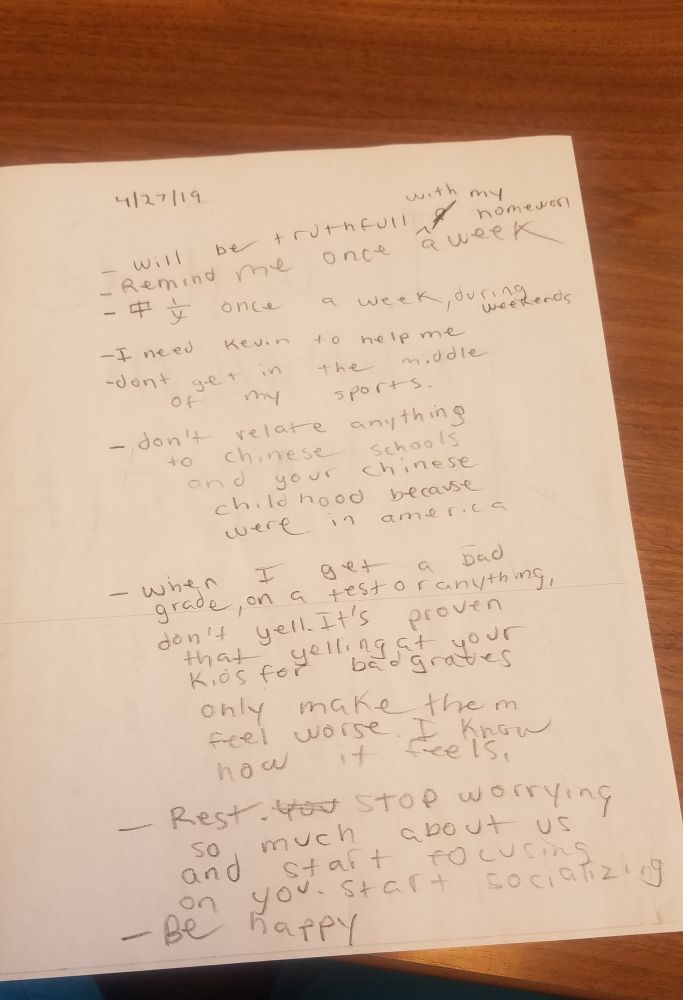 4/27/19
with my
- will be truthfull homework
- Remind me once a week
- 中 once a week, during
weekends
- I need Kevin to help me
- dont get in the middle
of my sports.
- don't relate anything
to chinese schools
and your chinese
childhood because
were in america
- when I get a bad
grade, on a test or anything,
don't yell. It's proven
that yelling at your
kids for bad grades
only make them
feel worse. I know
how it feels.
- Rest. You STOP worrying
so much about us
and start focusing
on you. start socializing
- Be happy